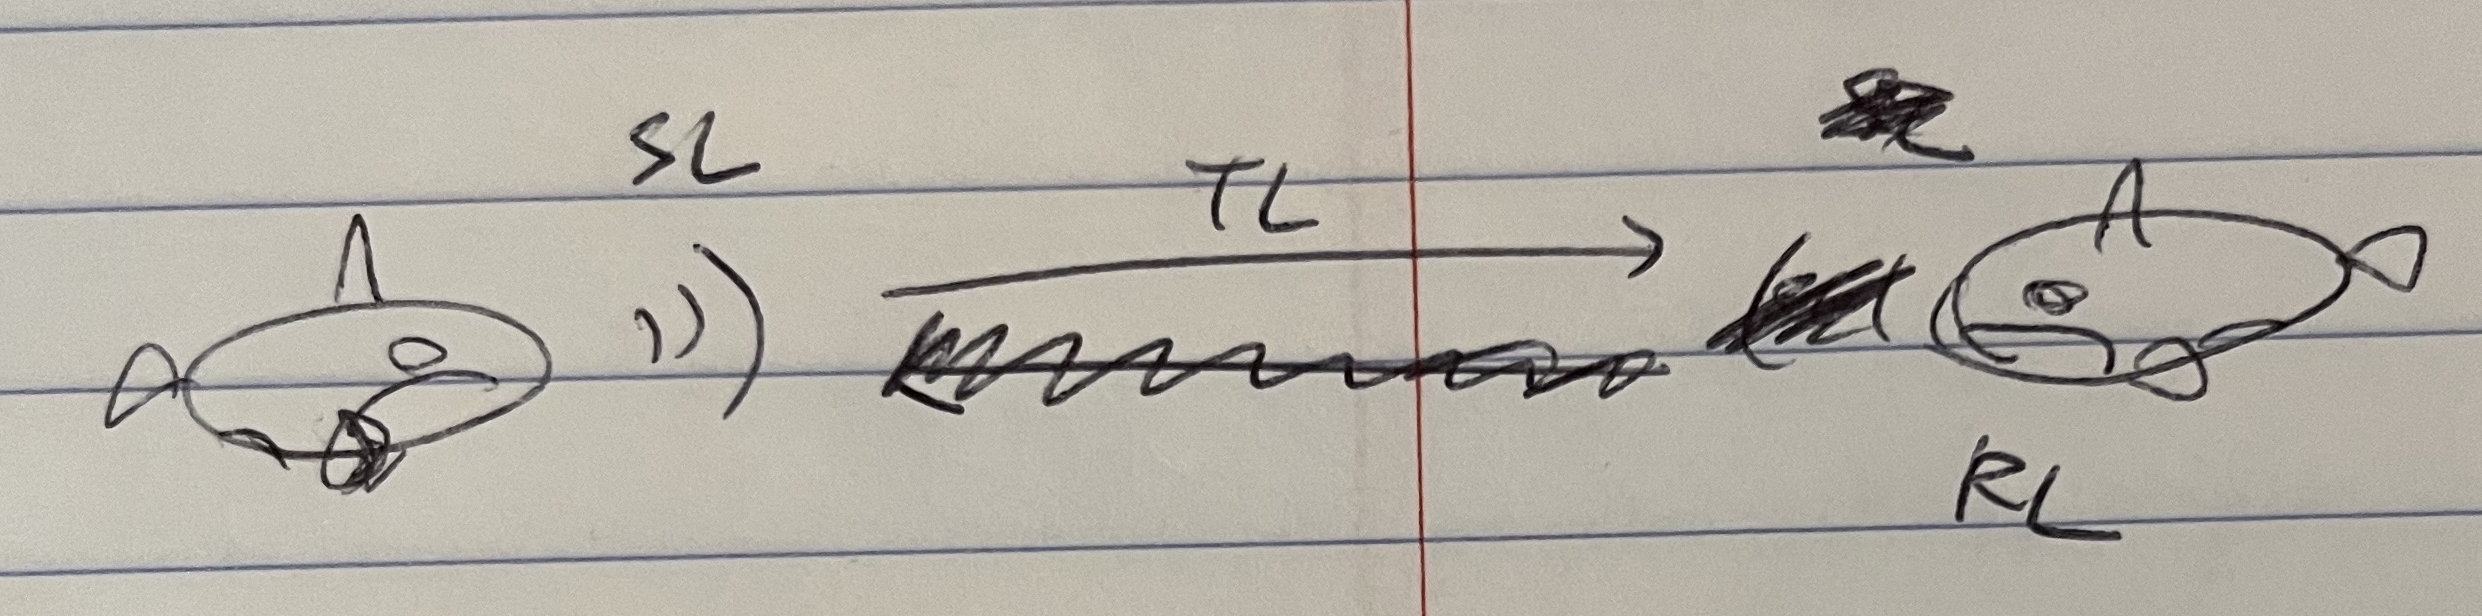 SL
TL
RL